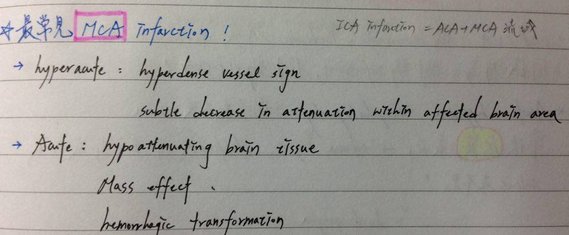 ☆最常見 MCA infarction !
ICA infarction = ACA+MCA 流域
→ hyperacute : hyperdense vessel sign
subtle decrease in attenuation within affected brain area
→ Acute : hypoattenuating brain tissue
Mass effect .
hemorrhagic transformation